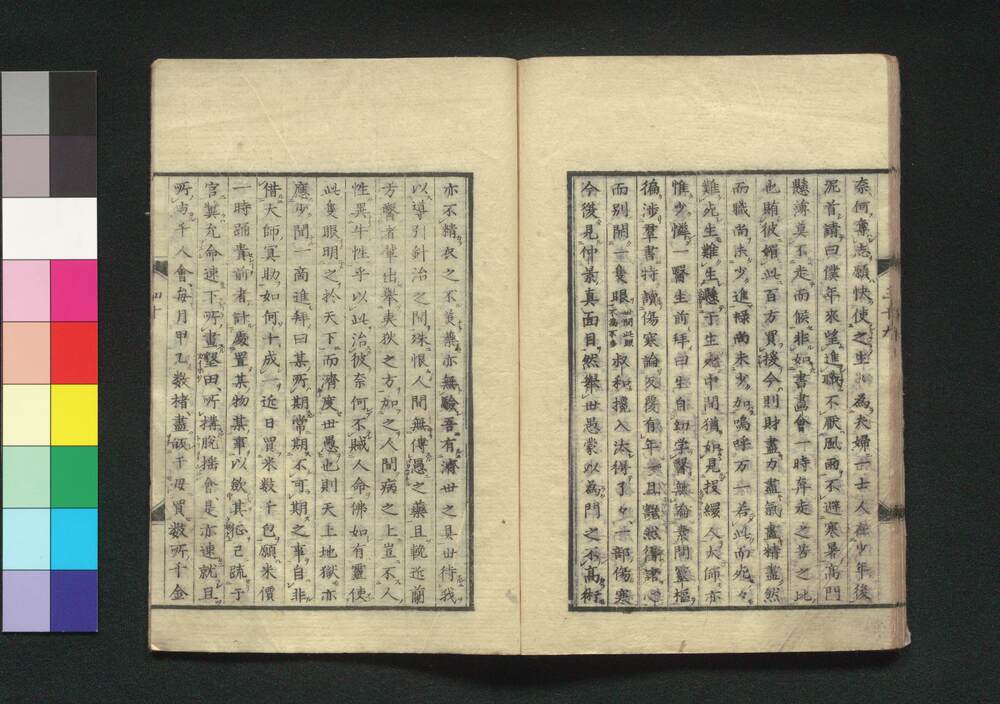 奈何奪志願快使之生為夫婦一士人在少年後
泥首請曰僕年來望進職不厭風雨不避寒暑高門
懸薄莫不走而候非如書畫會一時奔走之苦之比
也賄彼媚此百方買援今則財盡力盡氣盡精盡然
而職尚未少進祿尚未少如嗚呼万一若此而死々
難死生難生懸于生死中間猶如見援緩人大師亦
惟少憐一醫生前拜曰生自幼学醫無論素問靈樞
徧涉羣書特讀傷寒論反覆有年一旦豁然得諸心
而別開一隻眼叔和攙入汰得了々一部傷寒
今復見仲景真面目然舉世愚蒙以為門之不高術
亦不精衣之不美藥亦無驗吾有濟世之具世待我
以導引針治之間殊恨人間無傳愚之藥且輓近蘭
方醫者輩出舉夷狄之方如之人間病之上豈不人
性異牛性乎以此治彼奈何不賊人命佛如有靈使
此隻眼明之於天下而濟度世愚也則天上地獄亦
應少間一商進拜曰某所期常期不可期之事自非
借大師冥助如何十成一近日買米数千包願米價
一時踊貴前者計慶置某物某事以飲其征己疏于
官冀允命速下所畫墾田所構脫搖會是亦速就且
所与千人會每月甲乙数楮盡Ⅱ千母買数所千金
三十九
四十